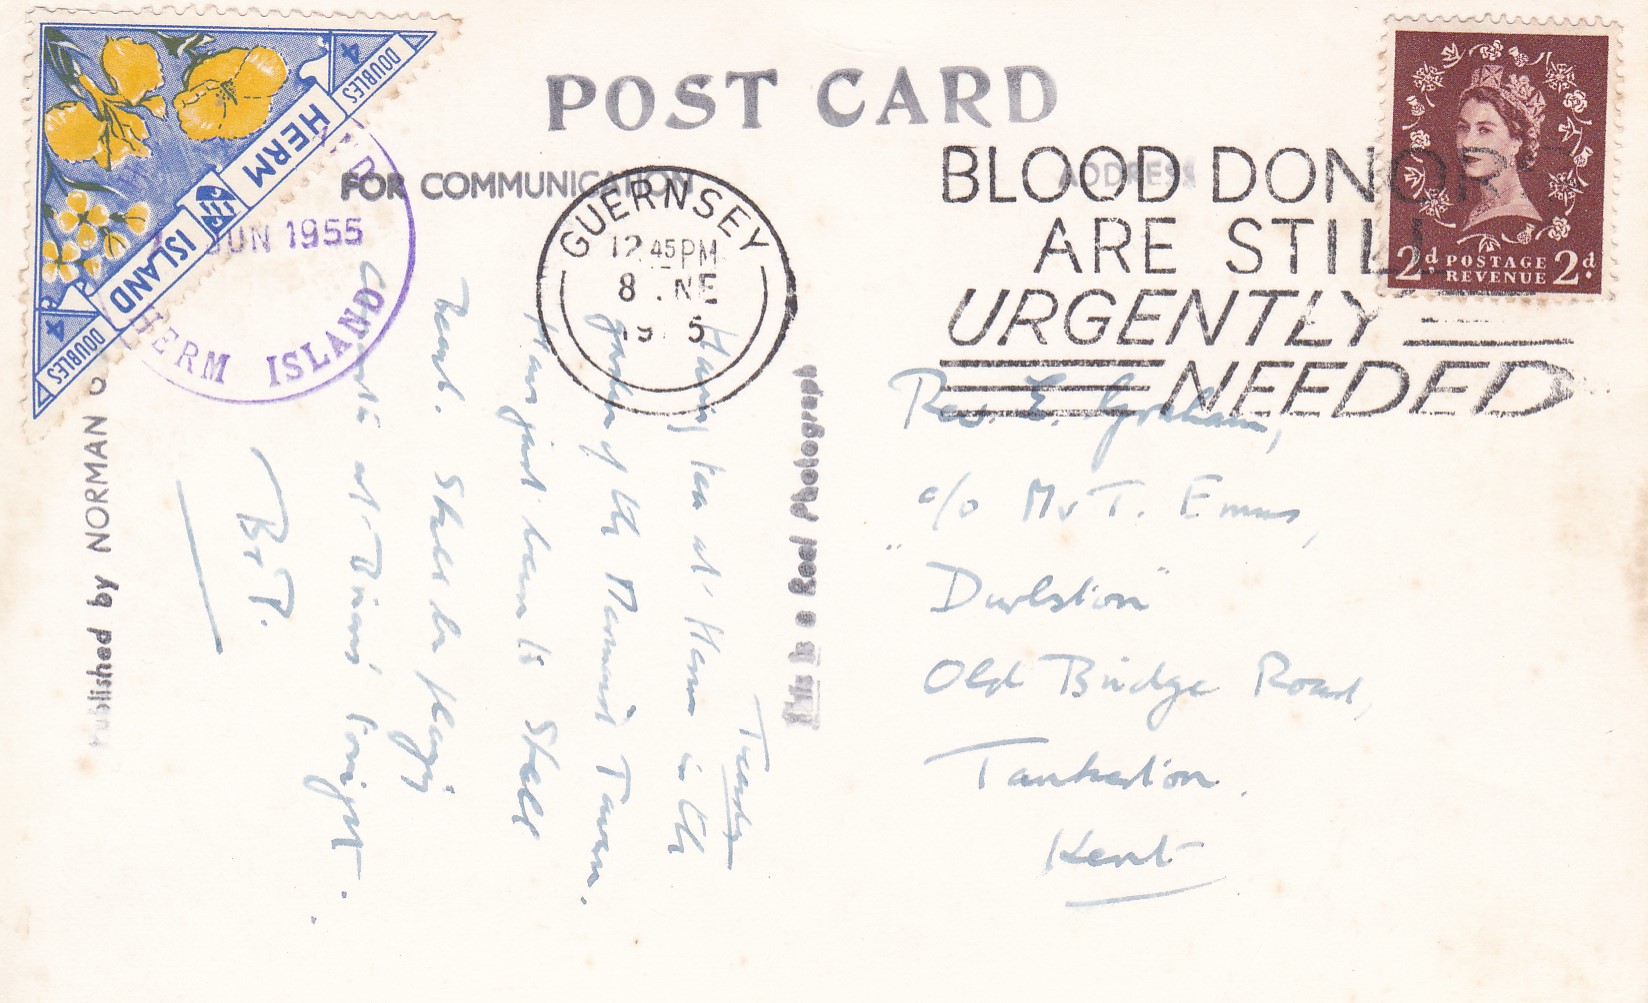 POST CARD
FOR COMMUNICATION
ADDRESS
4 DOUBLES
HERM
ISLAND
4 DOUBLES
JUN 1955
HERM ISLAND
GUERNSEY
12 45 PM
8 NE
19 5
BLOOD DONORS
ARE STILL
URGENTLY
NEEDED
2d POSTAGE 2d
REVENUE
Tuesday
Having tea at Herm in the
garden of the Mermaid Tavern.
Have just been to Shell
Beach. Shall be playing
at Dixcart tonight.
B & P.
Rev. E. Graham,
c/o Mr T. Emms,
"Durlston"
Old Bridge Road,
Tankerton.
Kent
This is a Real Photograph
Published by NORMAN